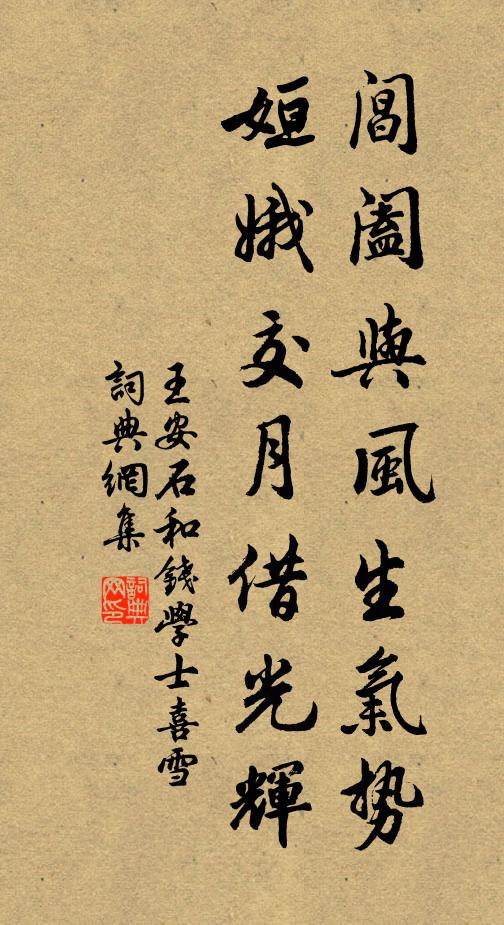 閶闔與風生氣勢
姮娥交月借光輝
王安石和錢學士喜雪
詞典網集
詞典
网印